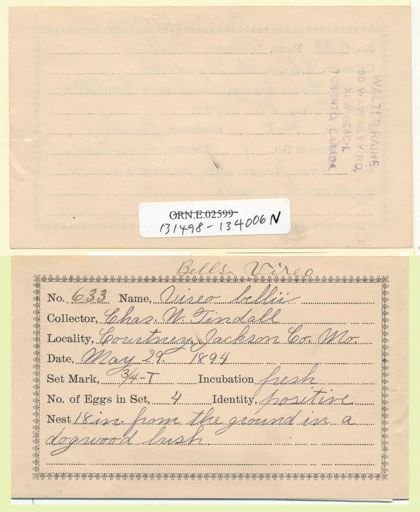 WALTER RAINE,
50 WAVERLEY RD,
KEW BEACH,
TORONTO, CANADA
ORN.E.02599
131498-134006 N
Bell's Vireo
No. 633 Name, Vireo bellii
Collector, Chas. W. Tindall
Locality, Courtney, Jackson Co. Mo.
Date, May 29 1894
Set Mark, 3/4-T Incubation fresh
No. of Eggs in Set, 4 Identity, positive
Nest 18 in from the ground in a
dogwood bush